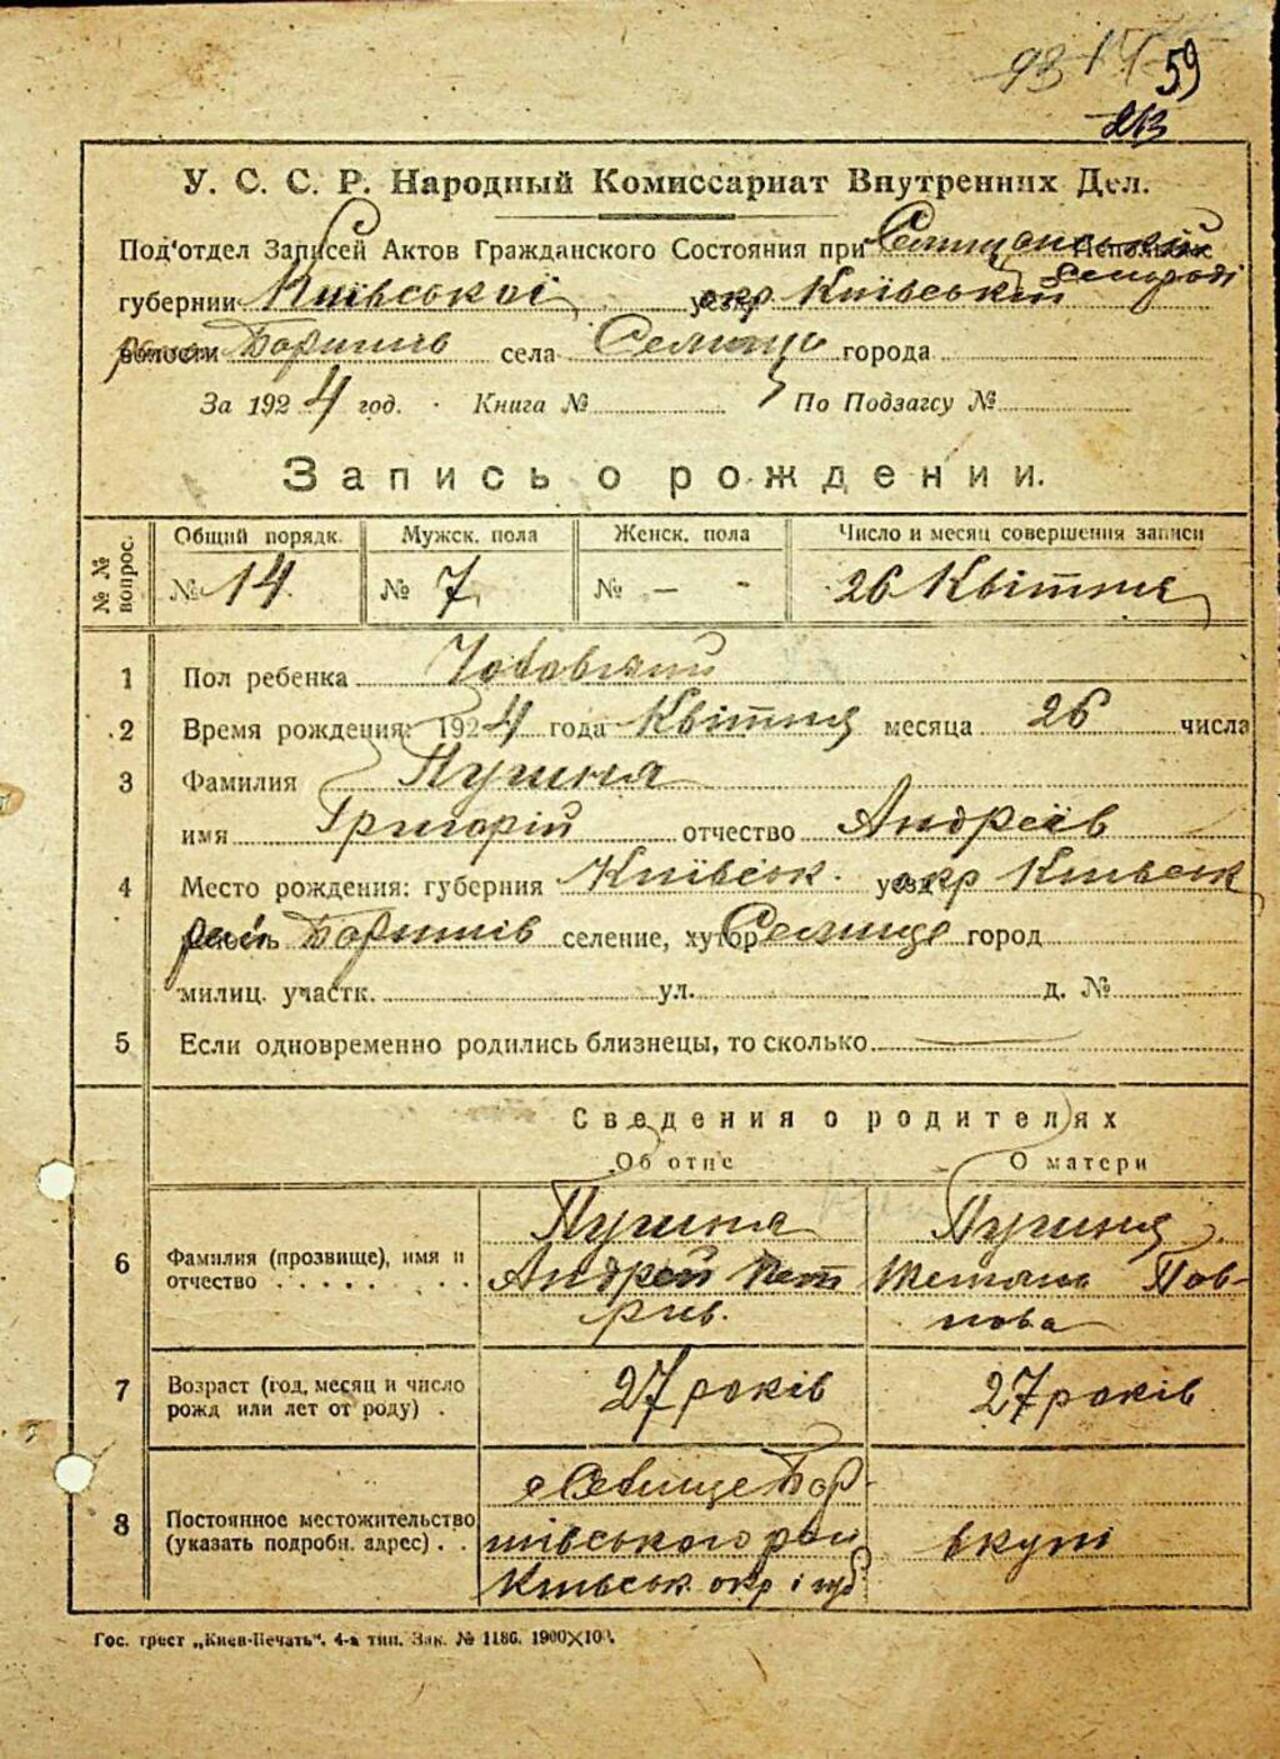 59
У. С. С. Р. Народный Комиссариат Внутренних Дел.
Под'отдел Записей Актов Гражданского Состояния при
губернии Київської окр Київський
Боришів села Селище города
За 1924 год. Книга № По Подзагсу №
Запись о рождении.
№ № вопрос. Общий порядк. Мужск. пола Женск. пола Число и месяц совершения записи
№ 14 № 7 № — - 26 Квітня
1 Пол ребенка Чоловічий
2 Время рождения: 1924 года Квітня месяца 26 числа
3 Фамилия
имя Григорій отчество Андреїв
4 Место рождения: губерния Київськ. окр Київськ
Боришів селение, хутор Селище город
милиц. участк. ул. д. №
5 Если одновременно родились близнецы, то сколько —
Сведения о родителях
Об отце О матери
6 Фамилия (прозвище), имя и
отчество . . . . . . . .
Андрей Пет
рив.
7 Возраст (год, месяц и число
рожд или лет от роду) .
27 років 27 років
8 Постоянное местожительство
(указать подробн. адрес) . .
Селище Бор-
шівського рай
Київськ окр і губ
вкупі
Гос. трест „Киев-Печать“. 4-я тип. Зак. № 1186. 1900×100.